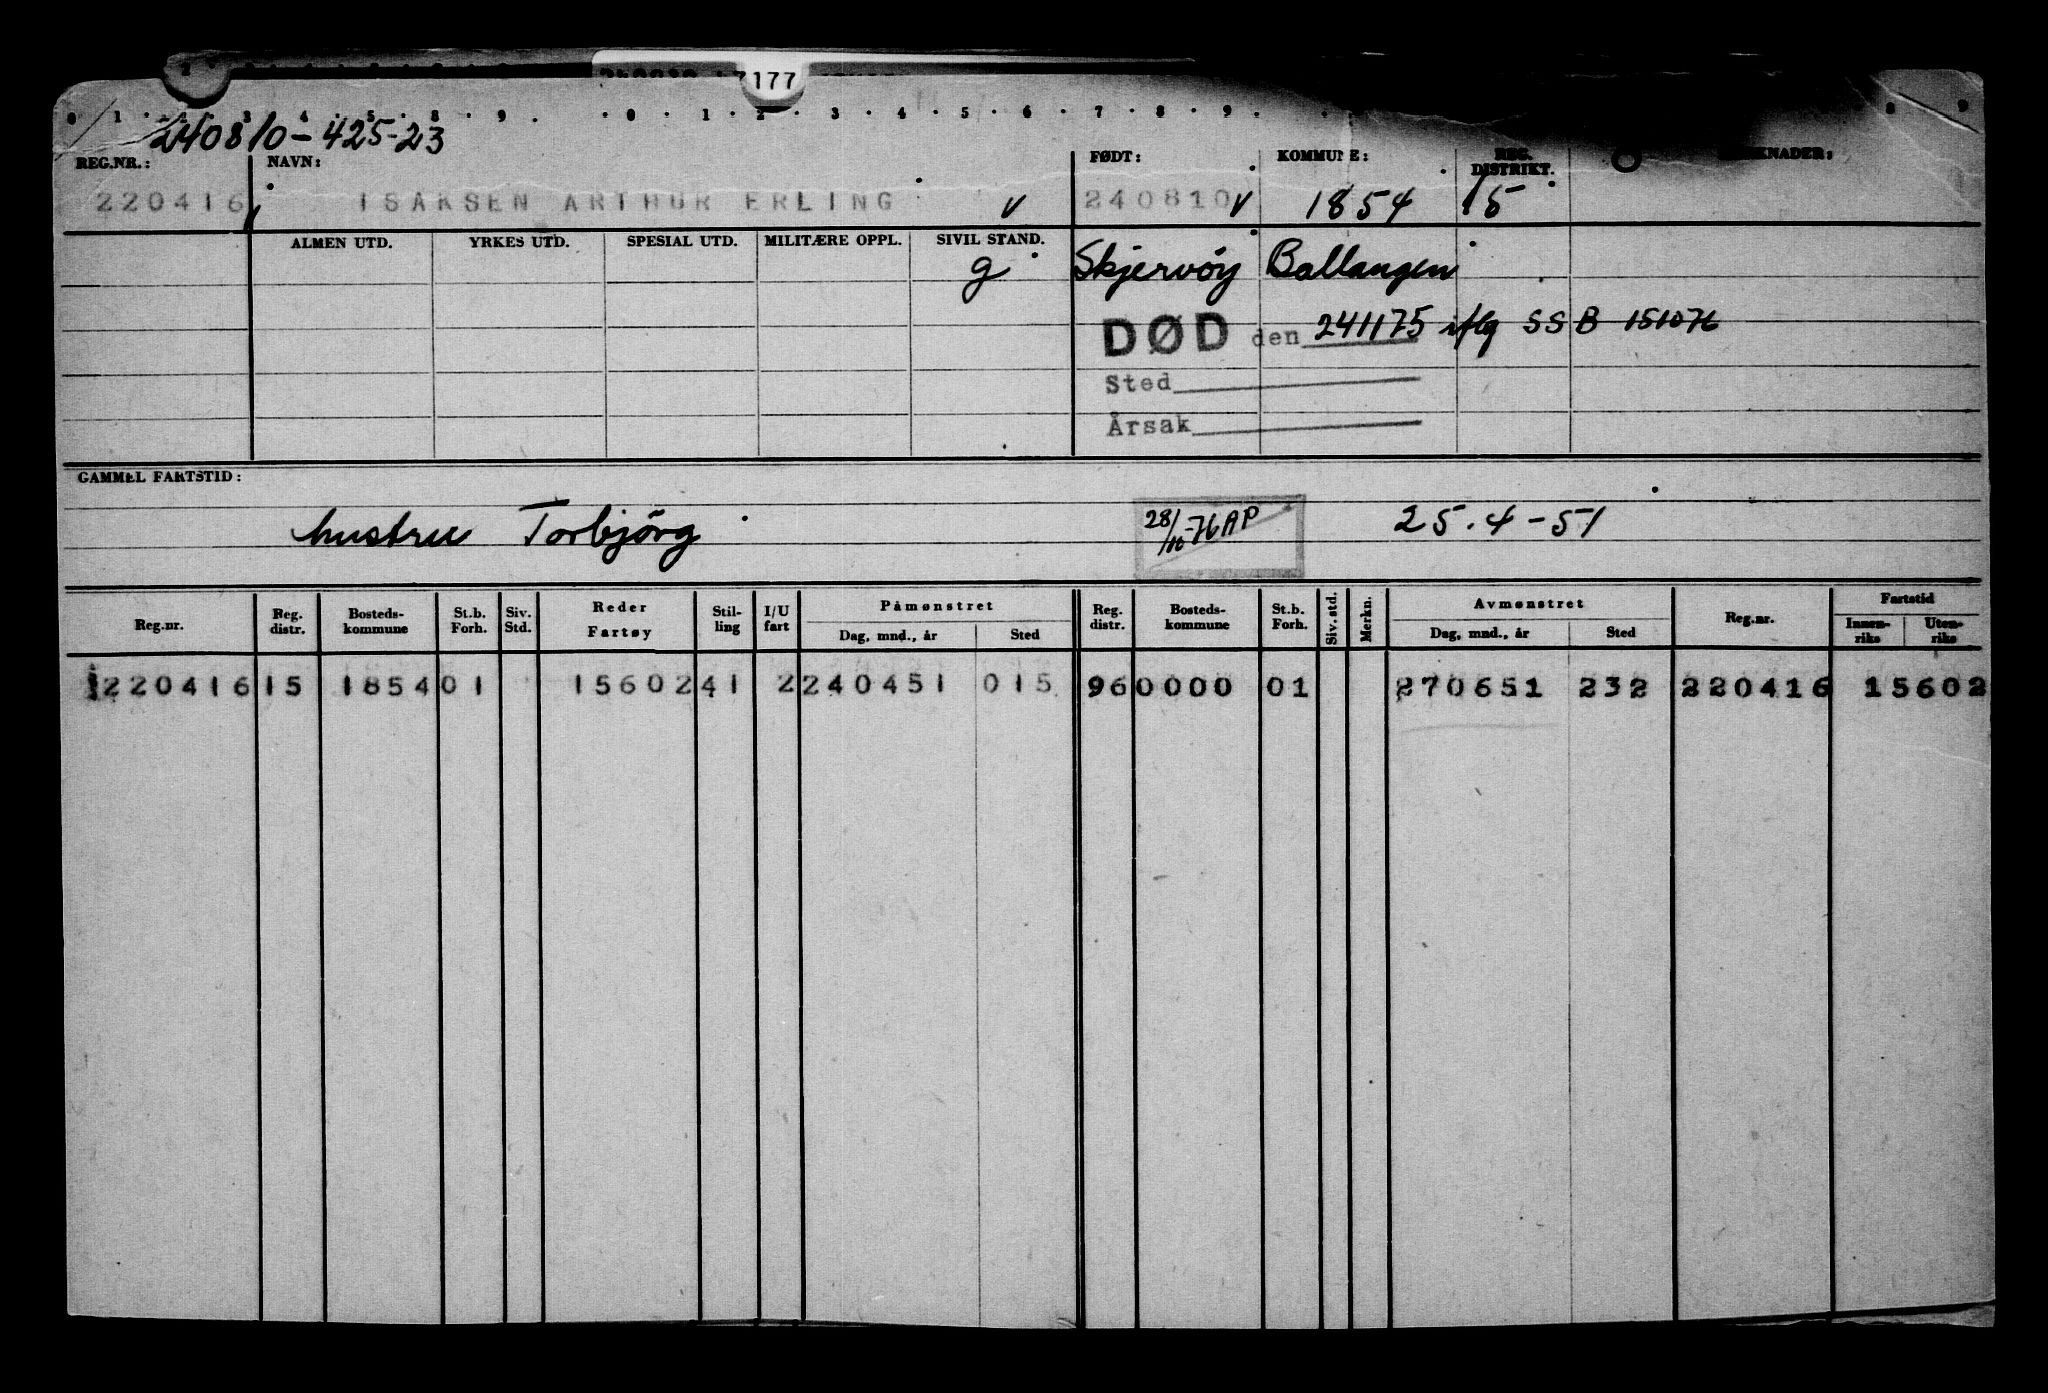 177
0 1 2 3 4 5 8 9 0 1 2 3 4 5 6 7 8 9 8 9
240810-425-23
REG.NR.: NAVN: FØDT: KOMMUNE: REG. DISTRIKT.
220416 ISAKSEN ARTHUR ERLING v 240810 v 1854 15
ALMEN UTD. YRKES UTD. SPESIAL UTD. MILITÆRE OPPL. SIVIL STAND.
g Skjervöy Ballangen
DØD den 241175 iflg SSB 151076
Sted
Årsak
GAMMEL FARTSTID:
hustru Torbjörg 28/10-76 AP 25.4-51
Reg.nr. Reg. distr. Bosteds-kommune St.b. Forh. Siv. Std. Reder Fartøy Stil-ling I/U fart Påmønstret Dag, mnd., år Sted Reg. distr. Bosteds-kommune St.b. Forh. Siv. std. Merkn. Avmønstret Dag, mnd., år Sted Reg.nr. Fartstid Innen-riks Uten-riks
220416 15 1854 01 15602 41 2 240451 015 96 0000 01 270651 232 220416 15602